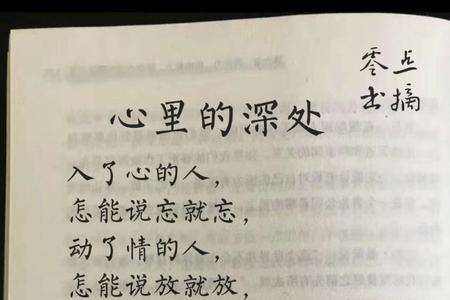 零点
书摘
心里的深处
入了心的人，
怎能说忘就忘，
动了情的人，
怎能说放就放，